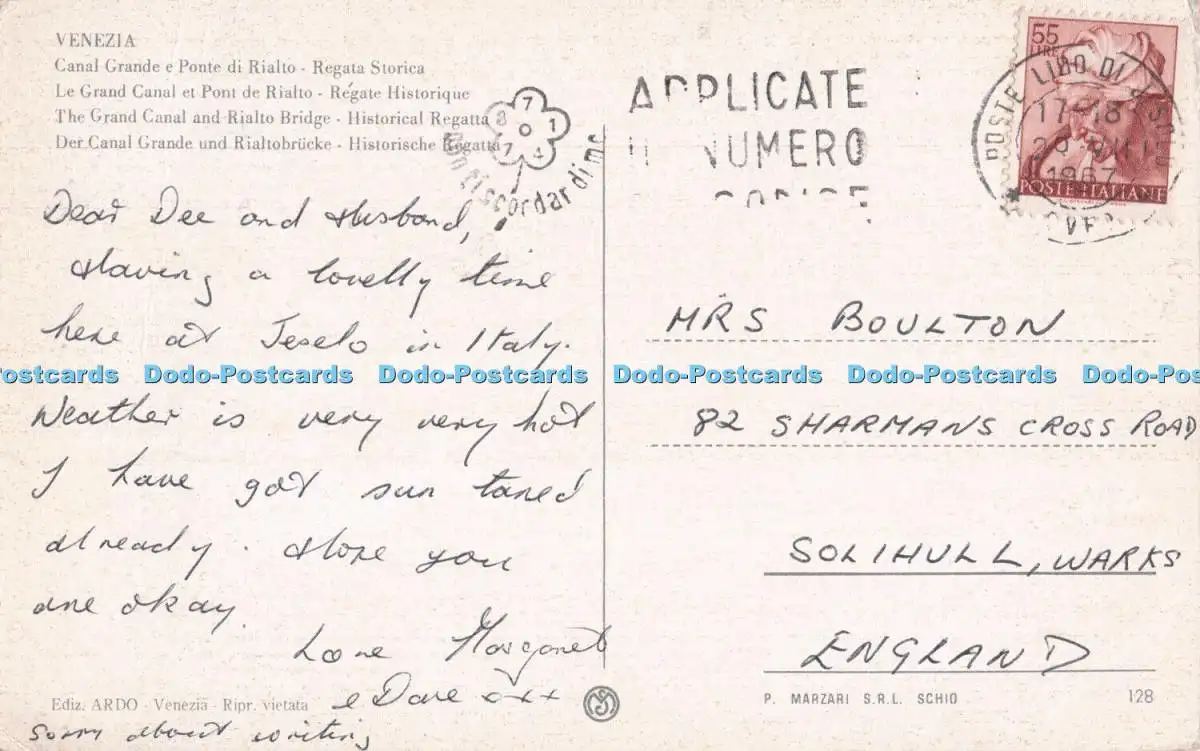 VENEZIA
Canal Grande e Ponte di Rialto - Regata Storica
Le Grand Canal et Pont de Rialto - Régate Historique
The Grand Canal and Rialto Bridge - Historical Regatta
Der Canal Grande und Rialtobrücke - Historische Regatta
non ti scordar di me
APPLICATE
IL NUMERO
55
LIRE
POSTE ITALIANE
POSTE LIDO DI
17-18
1967
Dear Dee and Husband,
Having a lovelly time
here at Jeselo in Italy.
Weather is very very hot
I have got sun taned
already. Hope you
are okay.
Love Margaret
& Dave xxx
sorry about writing
MRS BOULTON
82 SHARMANS CROSS ROAD
SOLIHULL, WARKS
ENGLAND
Ediz. ARDO - Venezia - Ripr. vietata
P. MARZARI S.R.L. SCHIO
128
ostcards Dodo-Postcards Dodo-Postcards Dodo-Postcards Dodo-Postcards Dodo-Pos